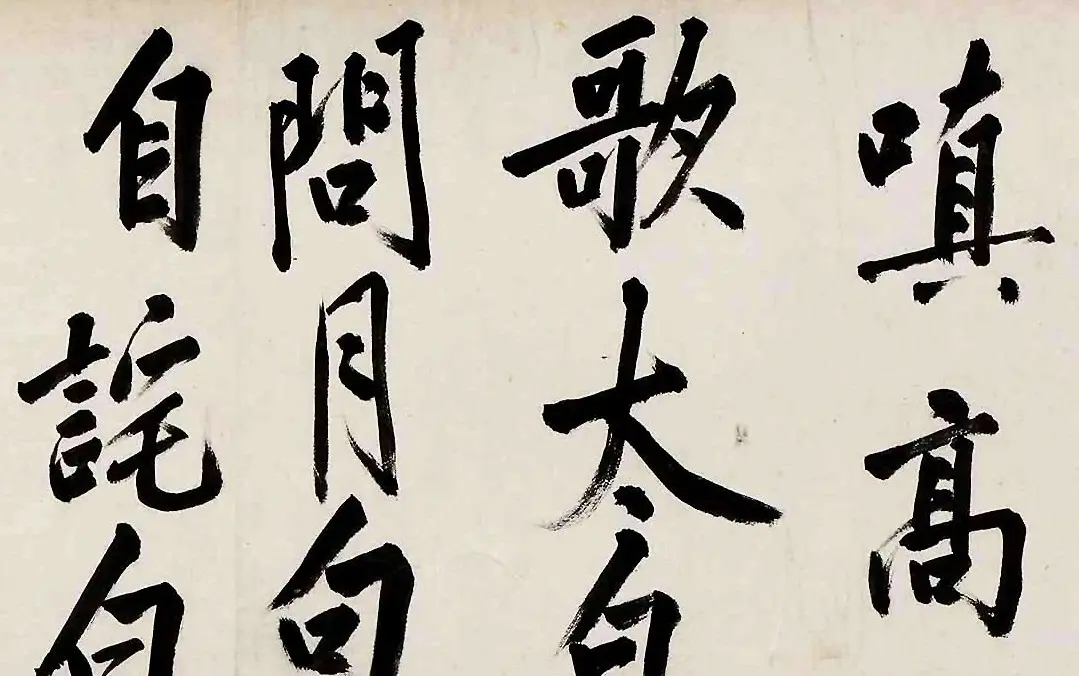 嗔高
歌太白
問月句
自詫白